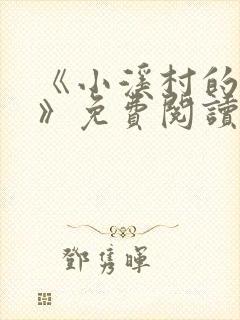 《小溪村的
》免費閱讀
鄧雋暉